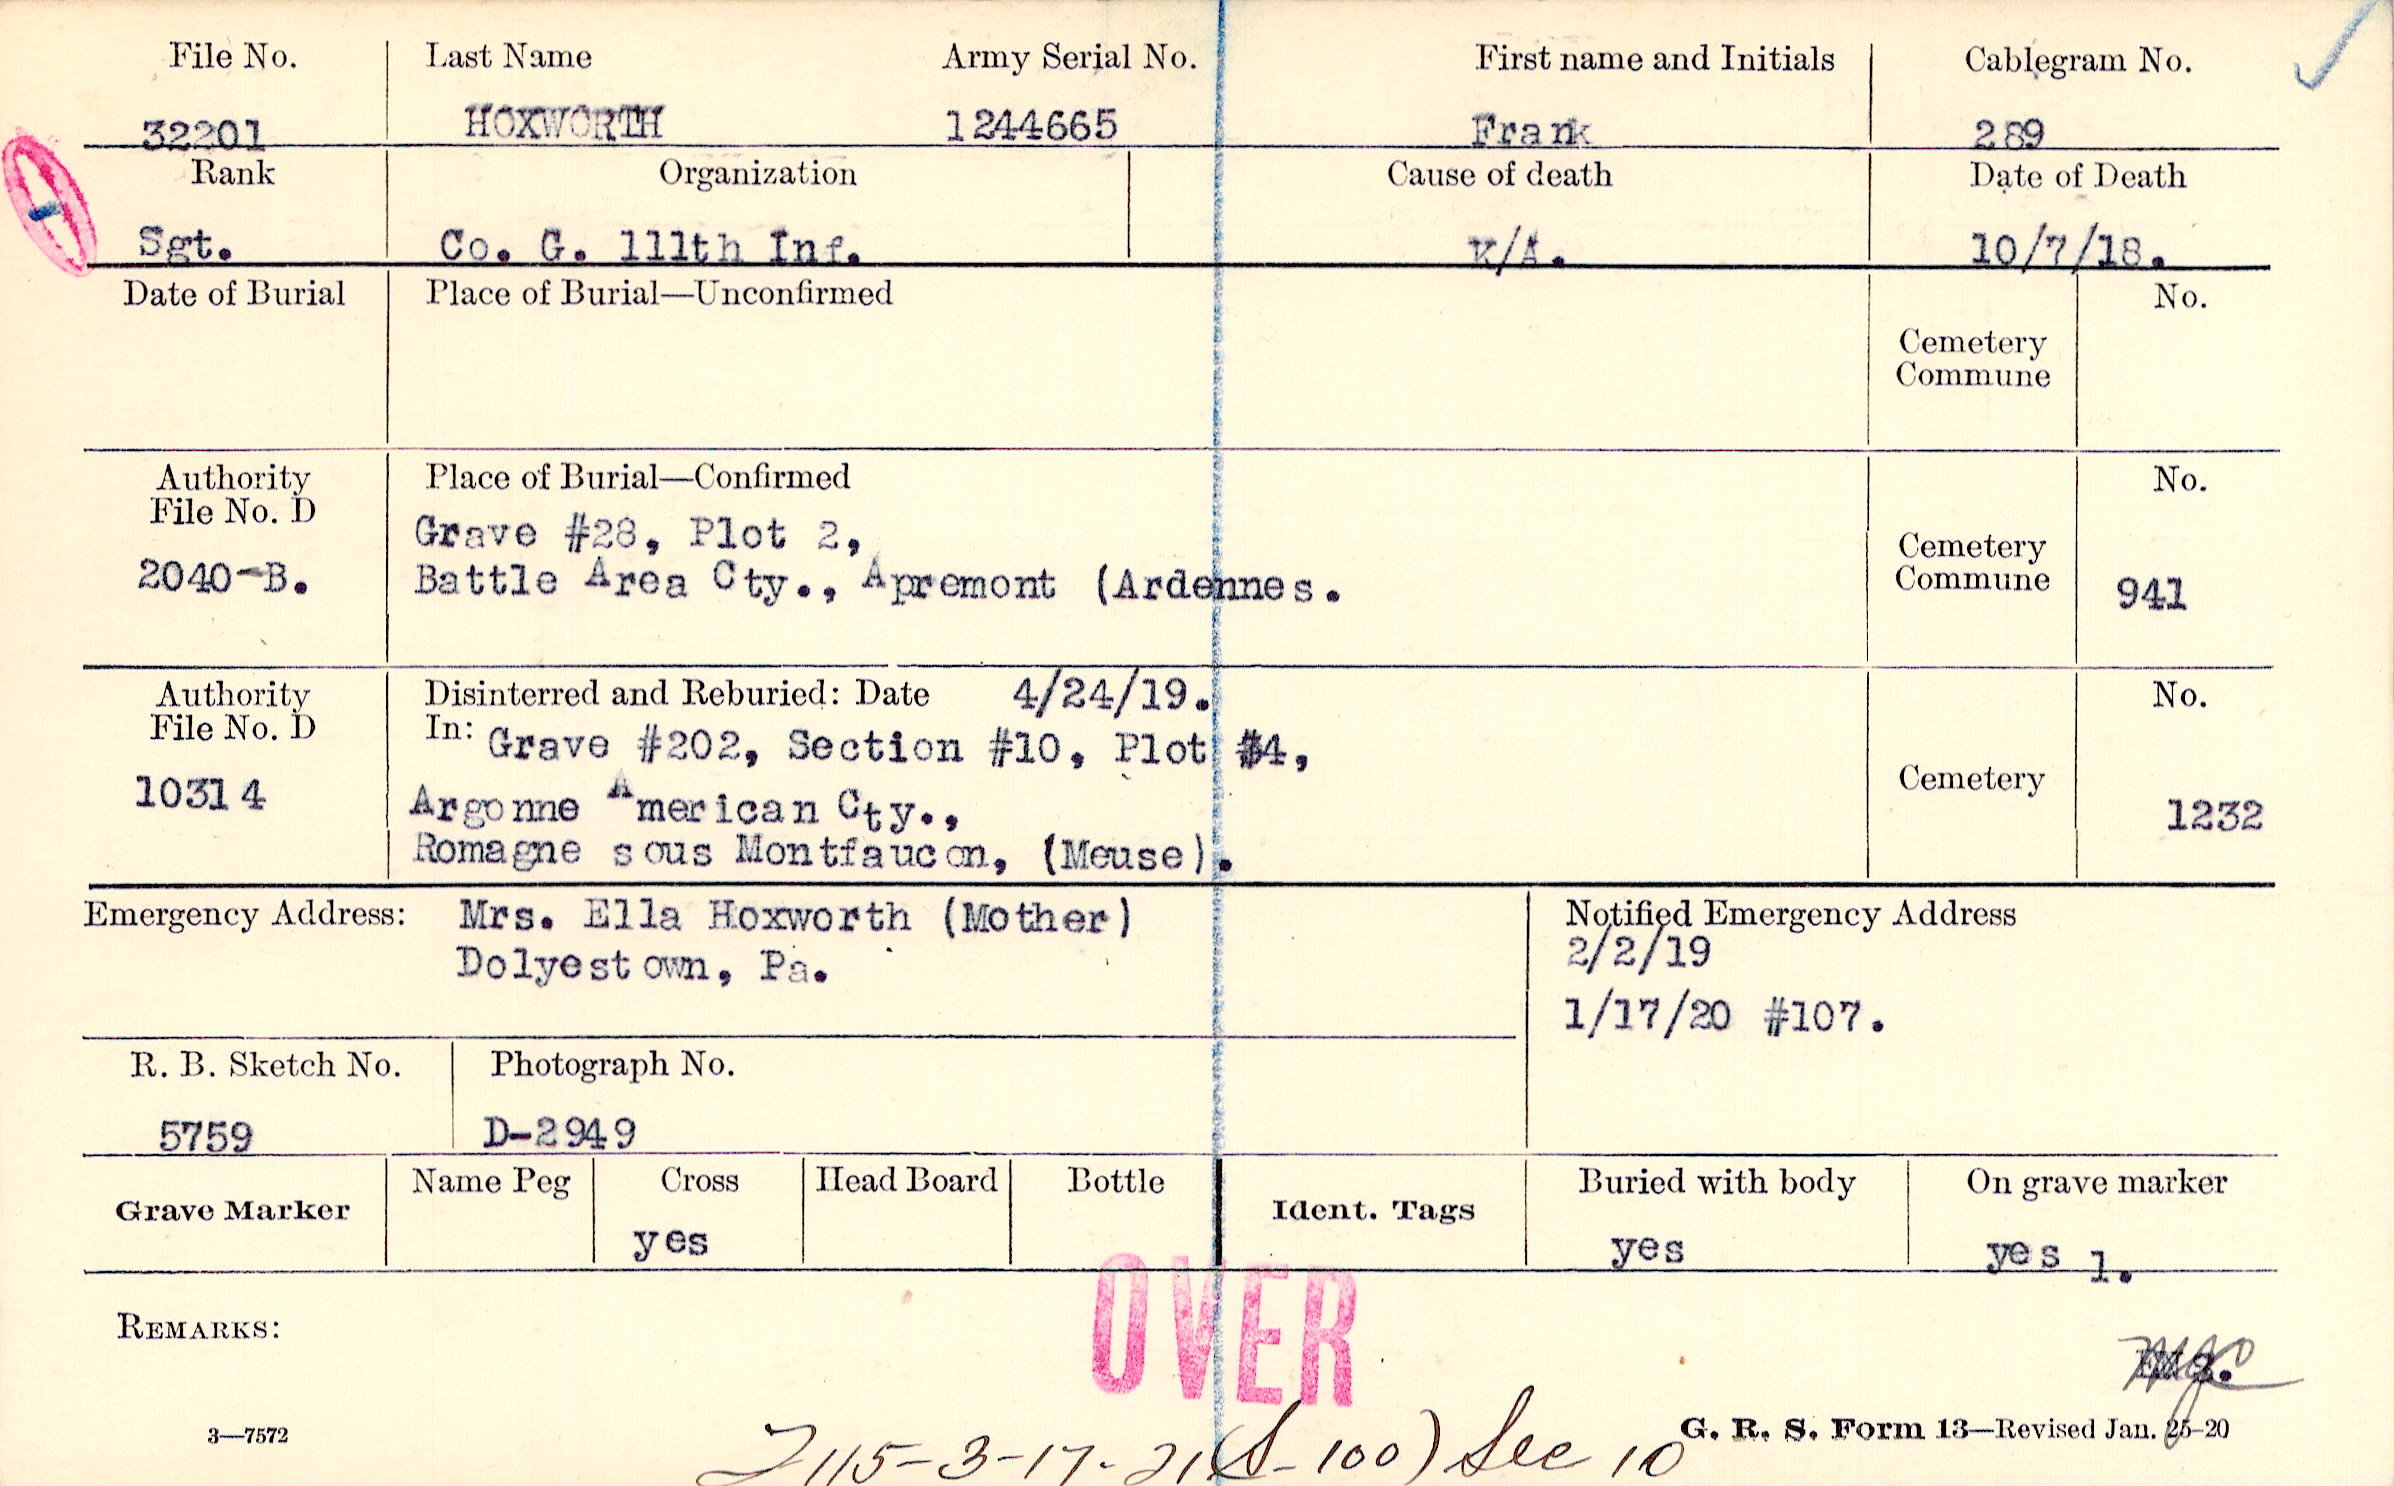 File No. Last Name Army Serial No. First name and Initials Cablegram No.
32201 HOXWORTH 1244665 Frank 289
Rank Organization Cause of death Date of Death
Sgt. Co. G. 111th Inf. K/A. 10/7/18.
Date of Burial Place of Burial—Unconfirmed No.
Cemetery
Commune
Authority Place of Burial—Confirmed No.
File No. D
Grave #28, Plot 2,
Cemetery
2040-B. Battle Area Cty., Apremont (Ardennes. Commune 941
Authority Disinterred and Reburied: Date 4/24/19. No.
File No. D In: Grave #202, Section #10, Plot #4,
Cemetery
10314 Argonne American Cty., 1232
Romagne sous Montfaucon, (Meuse).
Emergency Address: Mrs. Ella Hoxworth (Mother) Notified Emergency Address
Dolyestown, Pa. 2/2/19
1/17/20 #107.
R. B. Sketch No. Photograph No.
5759 D-2949
Grave Marker Name Peg Cross Head Board Bottle Ident. Tags Buried with body On grave marker
yes yes yes 1.
OVER
REMARKS:
3—7572 G. R. S. Form 13—Revised Jan. 25-20
115-3-17-21 (S-100) Sec 10